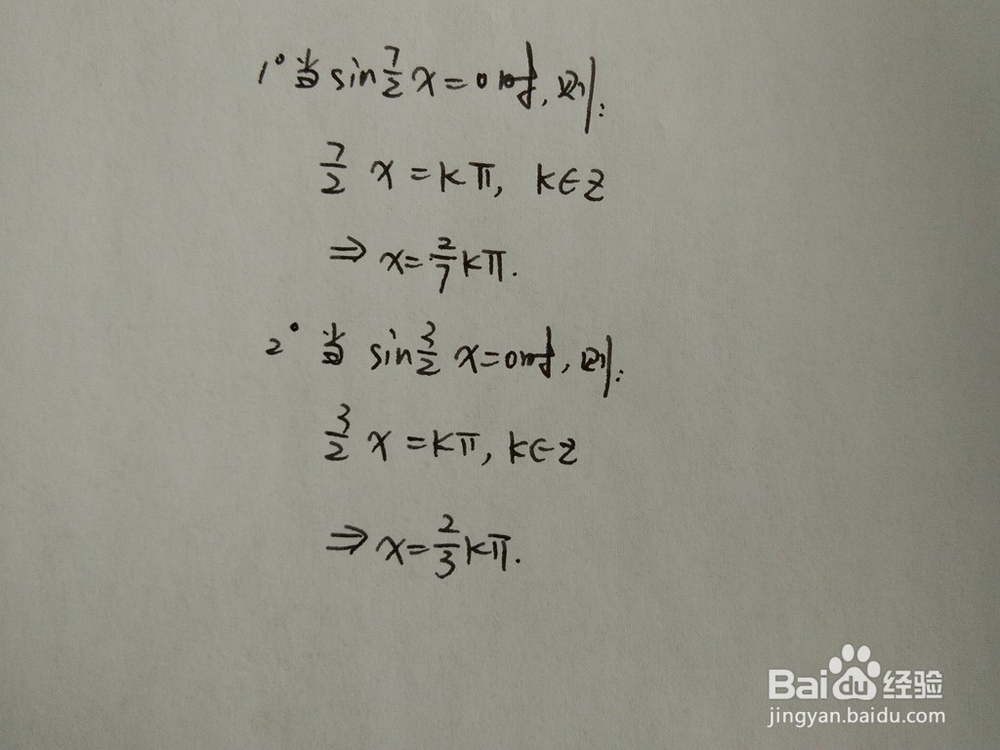 1° 当 sin 7/2 x = 0 时, 则:
7/2 x = kπ, k∈Z
⇒ x = 2/7 kπ.
2° 当 sin 3/2 x = 0 时, 则:
3/2 x = kπ, k∈Z
⇒ x = 2/3 kπ.
Baidu 经验
jingyan.baidu.com